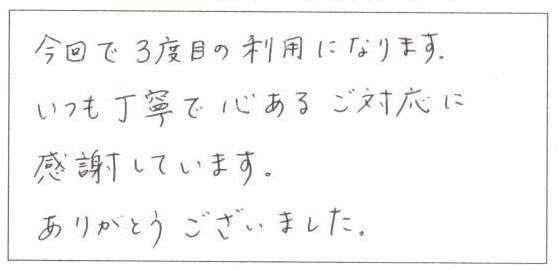 今回で3度目の利用になります.
いつも丁寧で心あるご対応に
感謝しています。
ありがとうございました。